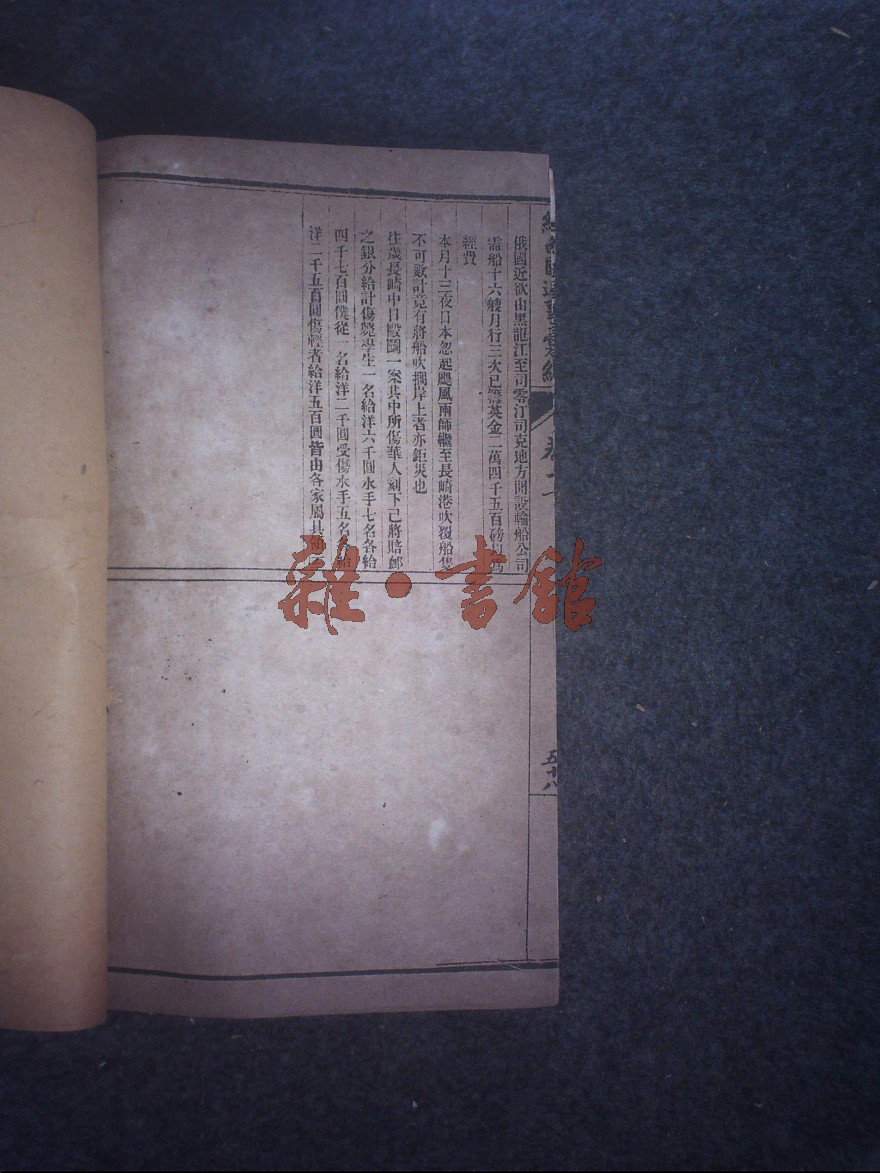 俄國近欲由黑龍江至司零汀司克地方開設輪船公司
需船十六艘月行三次已籌英金二萬四千五百磅
經費
本月十三夜日本忽起颶風雨師繼至長崎港吹覆船隻
不可數計竟有將船吹擱岸上者亦鉅災也
往歲長崎中日毆鬬一案其中所傷華人刻下己將賠卹
之銀分給計傷斃學生一名給洋六千圓水手七名各給
四千七百圓僕從一名給洋二千圓受傷水手五名給
洋二千五百圓傷輕者給洋五百圓皆由各家屬具領
卷
五十八
雜·書館